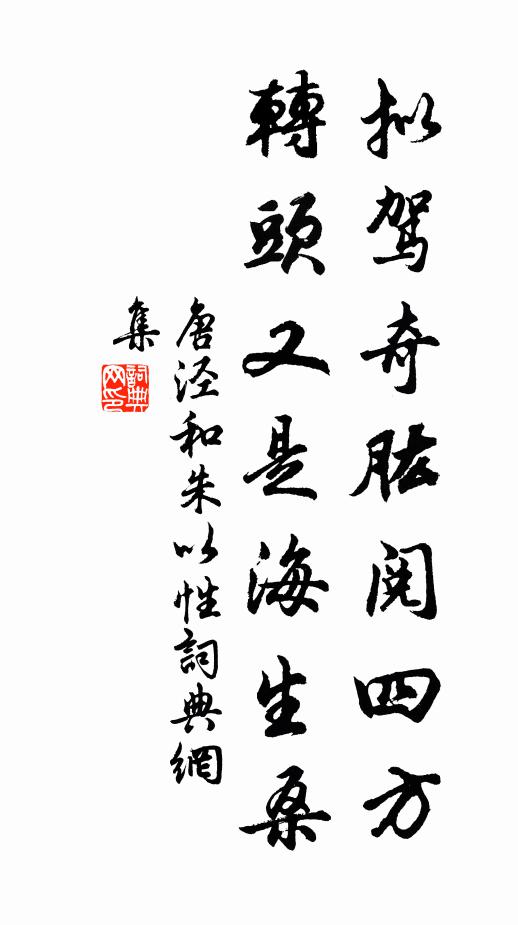 拟驾奇肱阅四方
轉頭又是海生桑
唐泾和朱以性詞典網
集
詞典网印